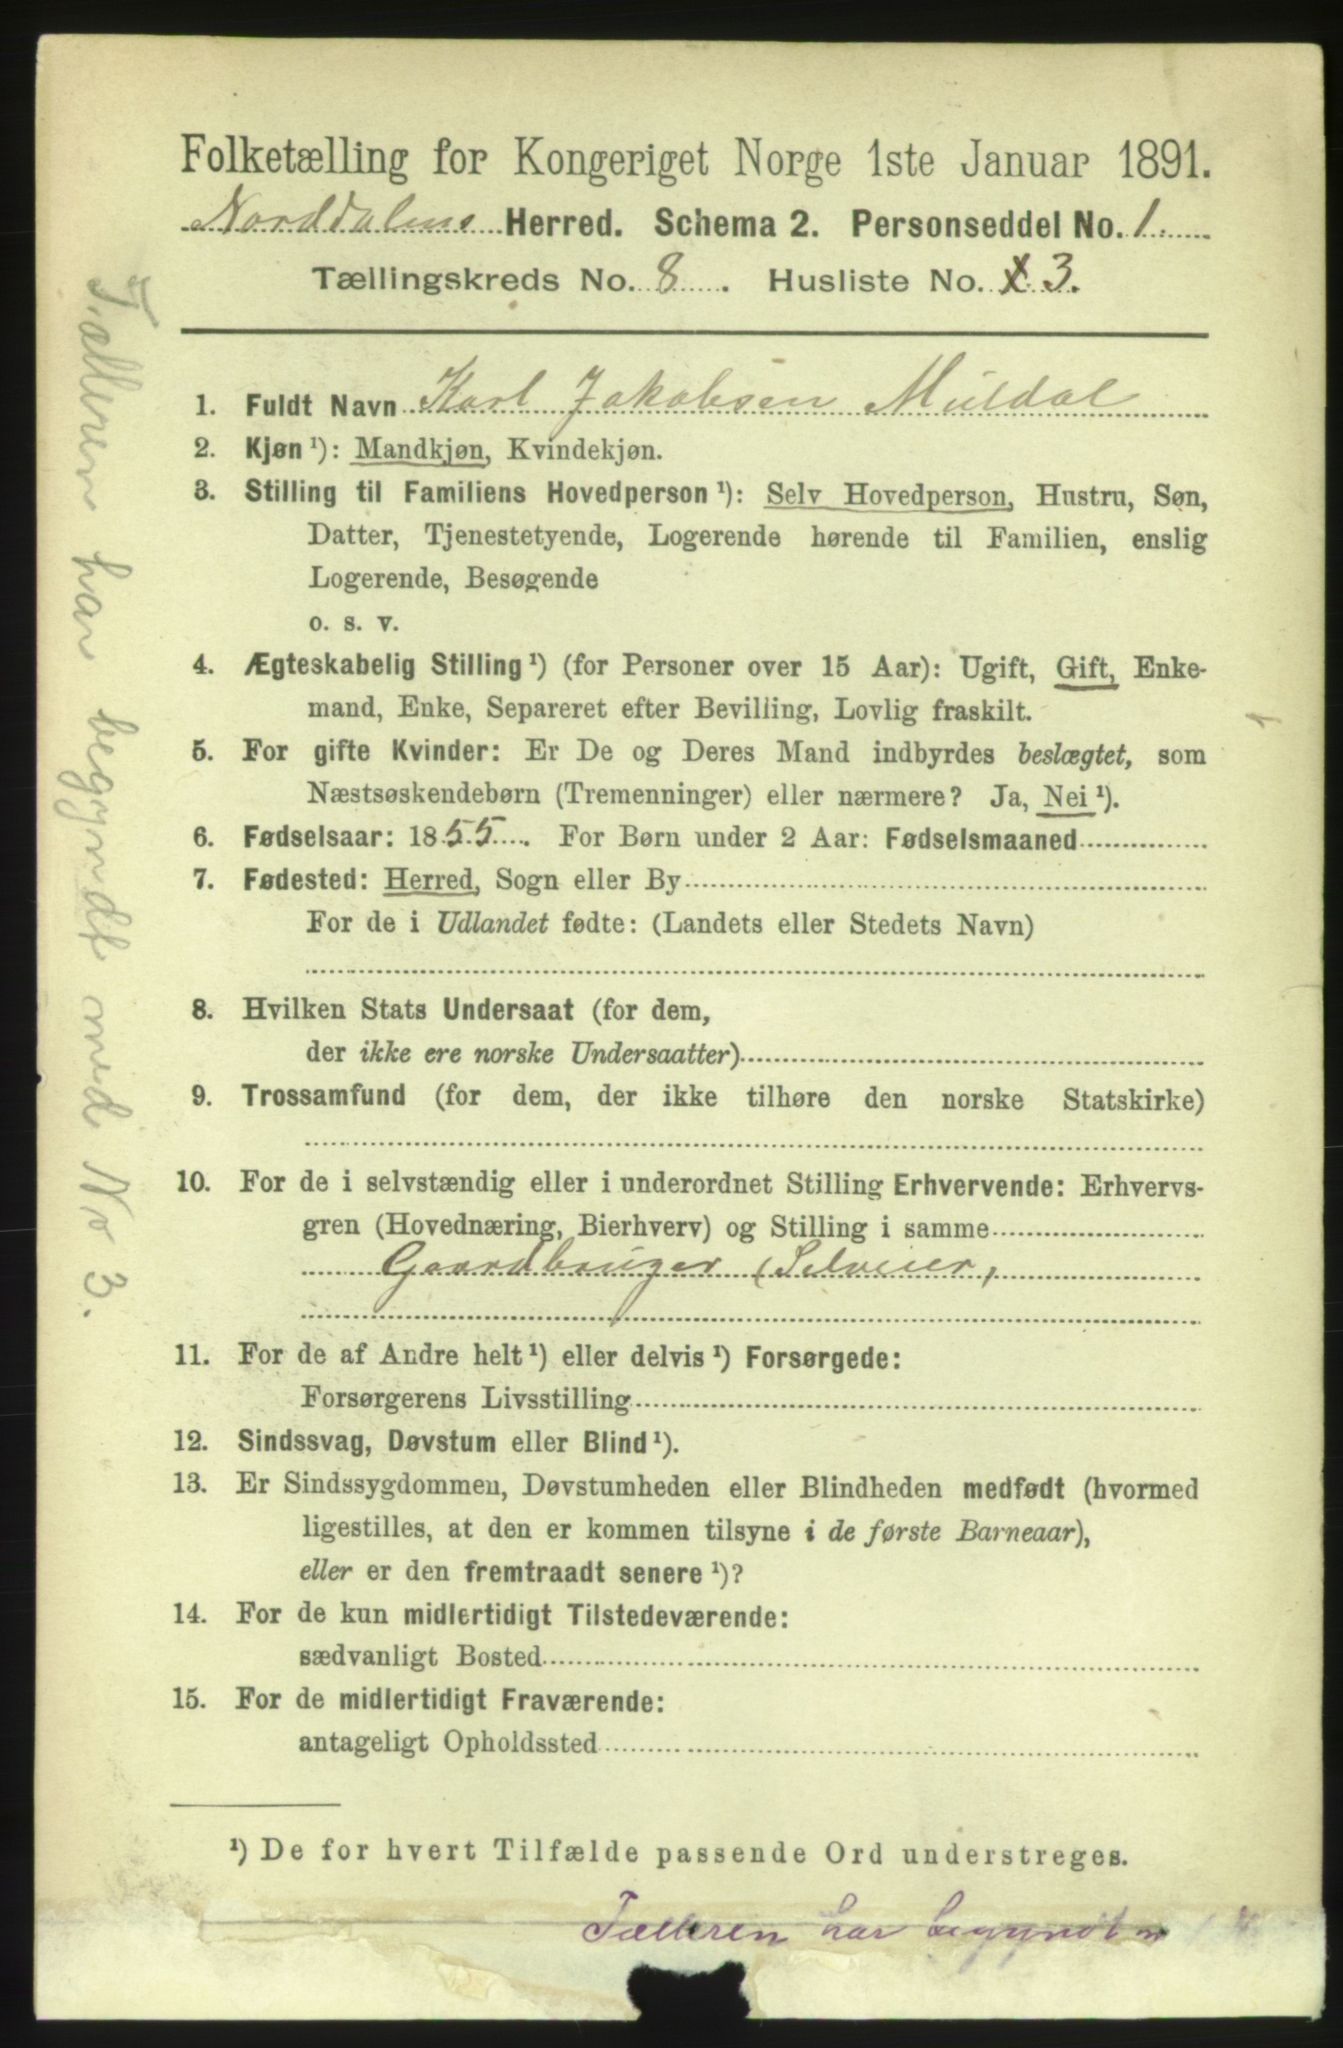 Folketælling for Kongeriget Norge 1ste Januar 1891.
Norddalens Herred. Schema 2. Personseddel No. 1.
Tællingskreds No. 8. Husliste No. 3.
1. Fuldt Navn Karl Jakobsen Muldal
2. Kjøn ¹): Mandkjøn, Kvindekjøn.
3. Stilling til Familiens Hovedperson ¹): Selv Hovedperson, Hustru, Søn,
Datter, Tjenestetyende, Logerende hørende til Familien, enslig
Logerende, Besøgende
o. s. v.
4. Ægteskabelig Stilling ¹) (for Personer over 15 Aar): Ugift, Gift, Enke-
mand, Enke, Separeret efter Bevilling, Lovlig fraskilt.
5. For gifte Kvinder: Er De og Deres Mand indbyrdes beslægtet, som
Næstsøskendebørn (Tremenninger) eller nærmere? Ja, Nei ¹).
6. Fødselsaar: 1855. For Børn under 2 Aar: Fødselsmaaned
7. Fødested: Herred, Sogn eller By
For de i Udlandet fødte: (Landets eller Stedets Navn)
8. Hvilken Stats Undersaat (for dem,
der ikke ere norske Undersaatter)
9. Trossamfund (for dem, der ikke tilhøre den norske Statskirke)
10. For de i selvstændig eller i underordnet Stilling Erhvervende: Erhvervs-
gren (Hovednæring, Bierhverv) og Stilling i samme
Gaardbruger (Selveier,
11. For de af Andre helt ¹) eller delvis ¹) Forsørgede:
Forsørgerens Livsstilling
12. Sindssvag, Døvstum eller Blind ¹).
13. Er Sindssygdommen, Døvstumheden eller Blindheden medfødt (hvormed
ligestilles, at den er kommen tilsyne i de første Barneaar),
eller er den fremtraadt senere ¹)?
14. For de kun midlertidigt Tilstedeværende:
sædvanligt Bosted
15. For de midlertidigt Fraværende:
antageligt Opholdssted
¹) De for hvert Tilfælde passende Ord understreges.
Tælleren har begyndt
Tælleren har begyndt med No 3.